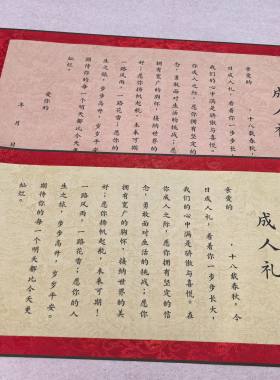 成人礼
亲爱的 ，十八载春秋
日成人礼，看着你一步步长
我们的心中满是骄傲与喜悦。
你成人之际，愿你拥有坚定的
念，勇敢面对生活的挑战；愿
拥有宽广的胸怀，接纳世界的
好；愿你扬帆起航，未来可期
一路风雨，一路花香；愿你的
生之旅，步步高升，岁岁平安
期待你的每一个明天都比今天更
灿烂。
爱你的
年 月 日
成人礼
亲爱的 ，十八载春秋，今
日成人礼，看着你一步步长大，
我们的心中满是骄傲与喜悦。在
你成人之际，愿你拥有坚定的信
念，勇敢面对生活的挑战；愿你
拥有宽广的胸怀，接纳世界的美
好；愿你扬帆起航，未来可期！
一路风雨，一路花香；愿你的人
生之旅，步步高升，岁岁平安。
期待你的每一个明天都比今天更
灿烂。